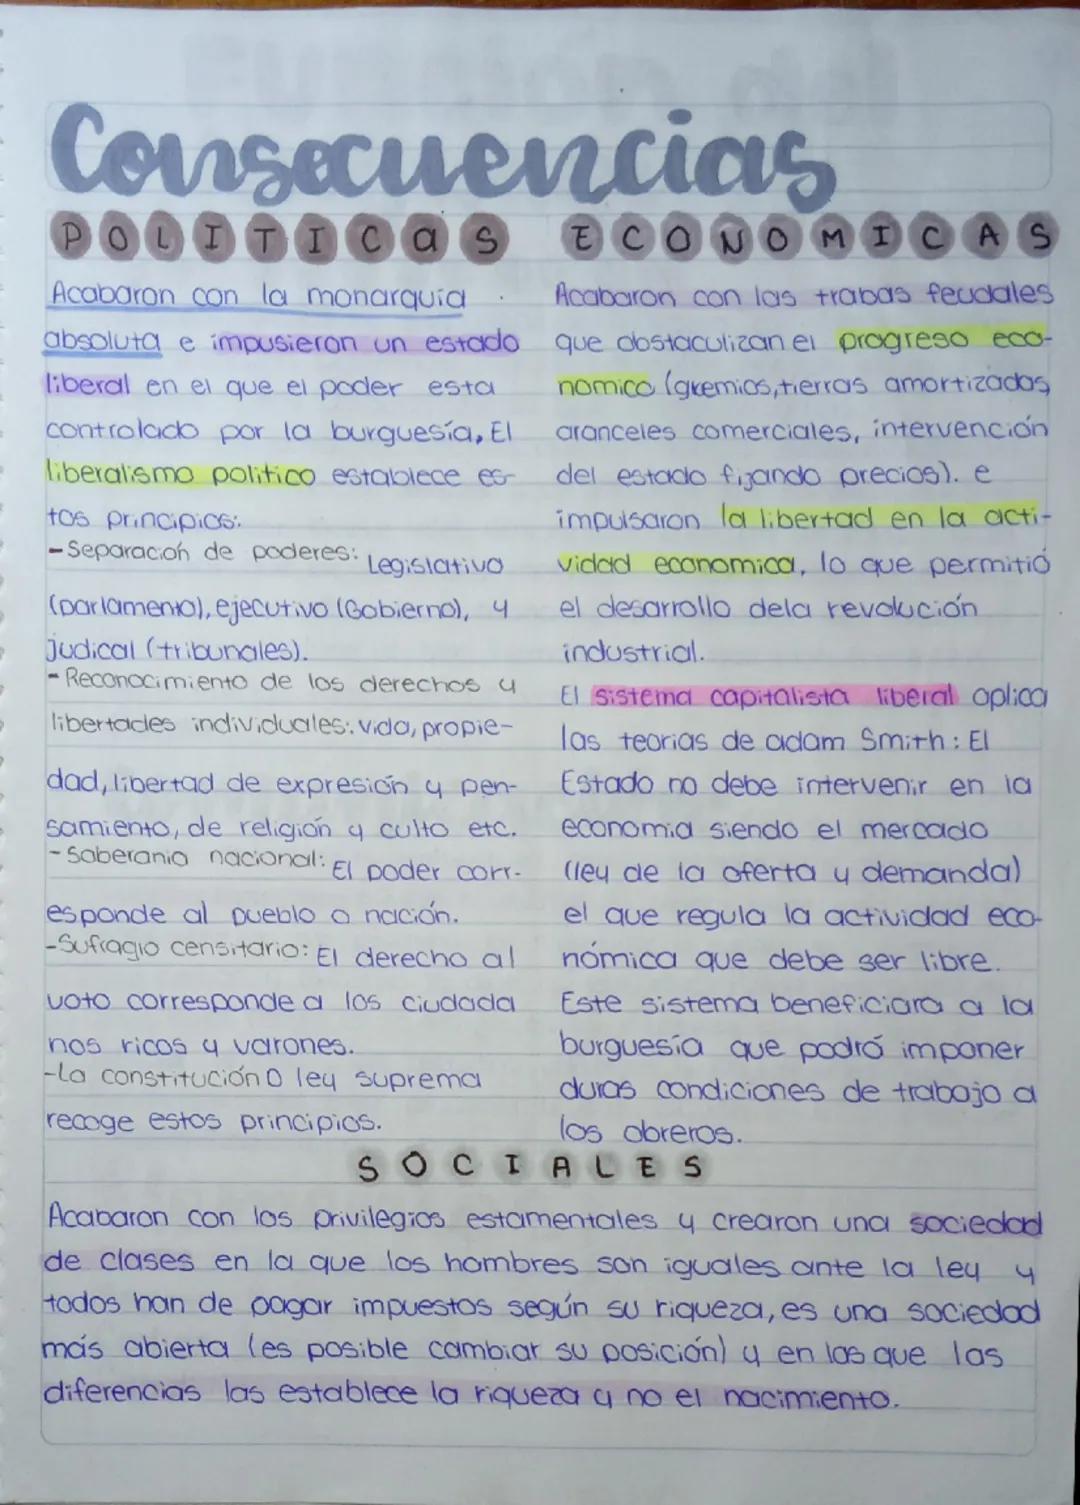 Consecuencias
POLITICaS
Acabaron con la monarquia
absoluta e impusieron un estado
liberal en el que el poder esta
controlado por la burguesía, El
liberalismo politico establece es-
tos principios:
-Separación de poderes: Legislativo
(parlamento), ejecutivo (Gobierno), y
judical (tribunales).
-Reconocimiento de los derechos y
libertades individuales: vida, propie-
dad, libertad de expresión y pen-
samiento, de religión y culto etc.
-Soberania nacional: El poder corr-
esponde al pueblo o nación.
-Sufragio censitario: El derecho al
voto corresponde a los ciudada
nos ricos y varones.
-La constitución O ley suprema
recoge estos principios.
ECONOMICAS
Acabaron con las trabas feudales
que obstaculizan el progreso eco-
nomico (gremios, tierras amortizadas,
aranceles comerciales, intervención
del estado fijando precios). e
impulsaron la libertad en la acti-
vidad economica, lo que permitió
el desarrollo dela revolución
industrial.
El sistema capitalista liberal aplica
las teorias de adam Smith: El
Estado no debe intervenir en la
economia siendo el mercado
(ley de la oferta y demanda)
el que regula la actividad eco-
nómica que debe ser libre.
Este sistema beneficiara a la
burguesía que podrá imponer
duras condiciones de trabajo a
los obreros.
SOCIALES
Acabaron con los privilegios estamentales y crearon una sociedad
de clases en la que los hombres son iguales ante la ley y
todos han de pagar impuestos según su riqueza, es una sociedad
más abierta (es posible cambiar su posición) y en las que las
diferencias las establece la riqueza y no el nacimiento.